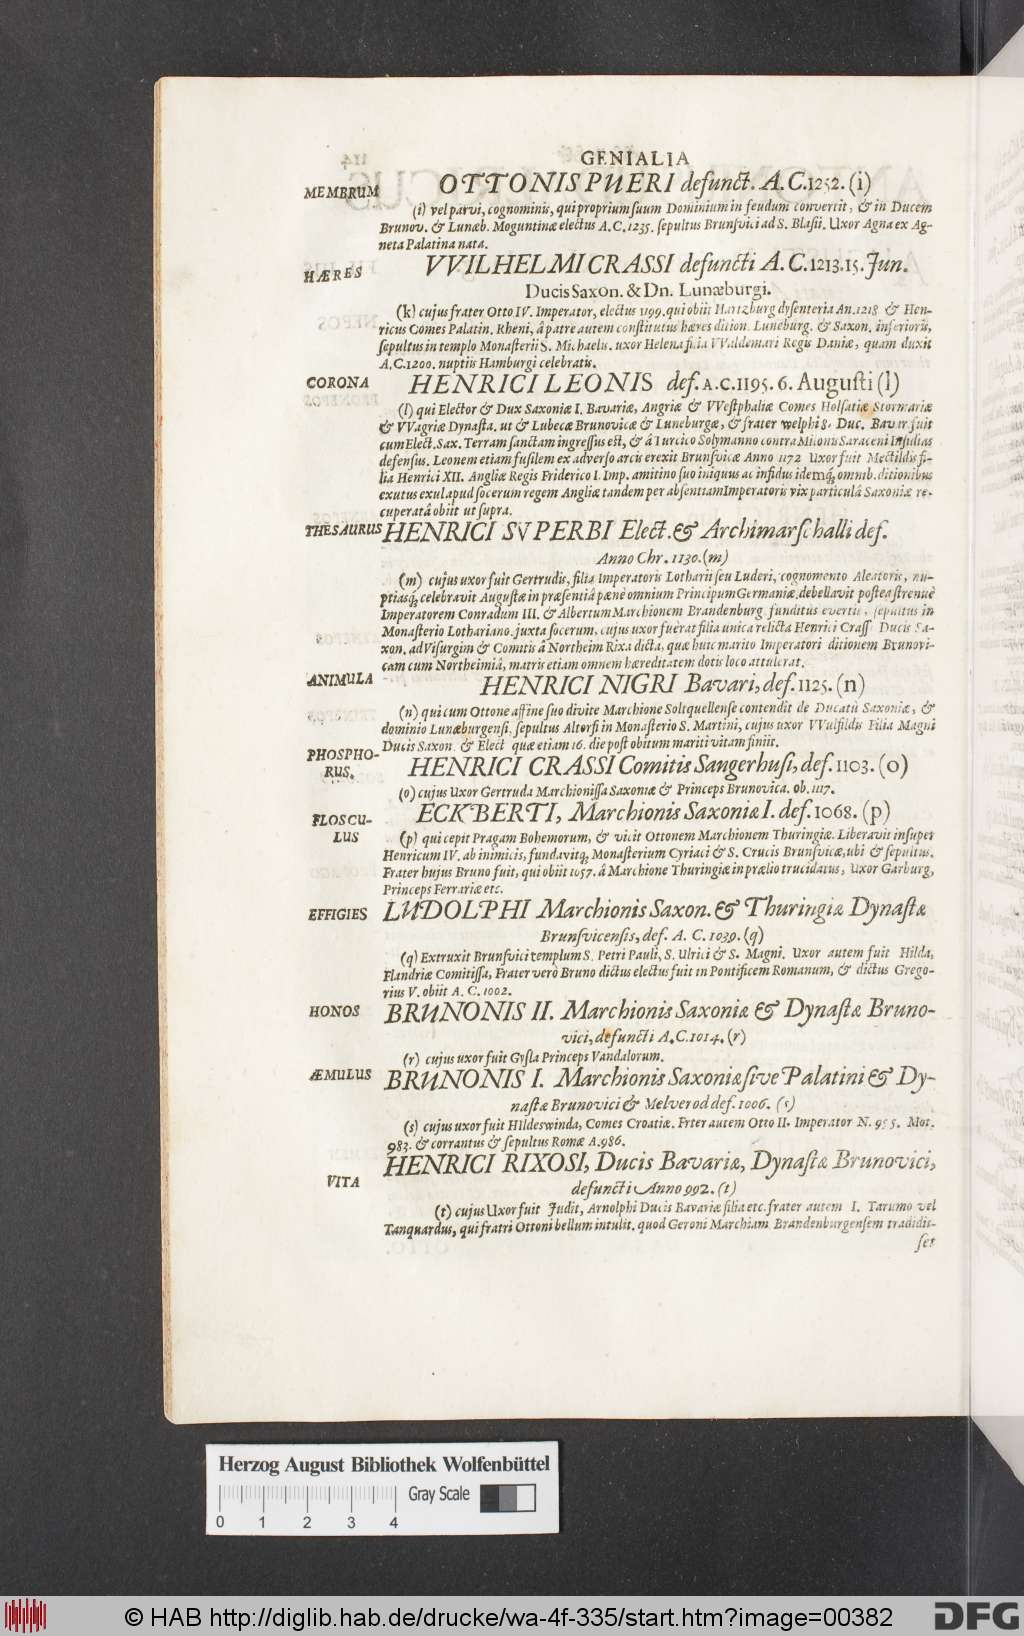 GENIALIA
MEMBRUM OTTONIS PUERI defunct. A. C. 1252. (i)
(i) vel parvi, cognominis, qui proprium suum Dominium in feudum convertit, & in Ducem
Brunov. & Lunæb. Moguntinæ electus A. C. 1235. sepultus Brunsvici ad S. Blasii. Uxor Agna ex Ag-
neta Palatina nata.
HÆRES VVILHELMI CRASSI defuncti A. C. 1213. 15. Jun.
Ducis Saxon. & Dn. Lunæburgi.
(k) cujus frater Otto IV. Imperator, electus 1199. qui obiit Hartzburg dysenteria An. 1218 & Hen-
ricus Comes Palatin. Rheni, â patre autem constitutus hæres dition. Luneburg. & Saxon. inferioris,
sepultus in templo Monasterii S. Michaelis. uxor Helena filia VValdemari Regis Daniæ, quam duxit
A. C. 1200. nuptiis Hamburgi celebratis.
CORONA HENRICI LEONIS def. A. C. 1195. 6. Augusti (l)
(l) qui Elector & Dux Saxoniæ I. Bavariæ, Angriæ & VVestphaliæ Comes Holsatiæ Stormariæ
& VVagriæ Dynasta. ut & Lubecæ Brunovicæ & Luneburgæ, & frater welphi 8. Duc. Bavar. fuit
cum Elect. Sax. Terram sanctam ingressus est, & â Turcico Solymanno contra Milonis Saraceni Insidias
defensus. Leonem etiam fusilem ex adverso arcis erexit Brunsvicæ Anno 1172 Uxor fuit Mectildis fi-
lia Henrici XII. Angliæ Regis Friderico I. Imp. amitino suo iniquus ac infidus idemq; omnib. ditionibus
exutus exul apud socerum regem Angliæ tandem per absentiam Imperatoris vix particulâ Saxoniæ re-
cuperatâ obiit ut supra.
THESAURUS HENRICI SVPERBI Elect. & Archimarschalli def.
Anno Chr. 1130. (m)
(m) cujus uxor fuit Gertrudis, filia Imperatoris Lotharii seu Luderi, cognomento Aleatoris, nu-
ptiasq; celebravit Augustæ in præsentiâ pæne omnium Principum Germaniæ, debellavit postea strenuè
Imperatorem Conradum III. & Albertum Marchionem Brandenburg. funditus evertit, sepultus in
Monasterio Lothariano. juxta socerum, cujus uxor fuerat filia unica relicta Henrici Crass Ducis Sa-
xon. ad Visurgim & Comitis â Northeim Rixa dicta, quæ huic marito Imperatori ditionem Brunovi-
cam cum Northeimiâ, matris etiam omnem hæreditatem dotis loco attulerat.
ANIMULA HENRICI NIGRI Bavari, def. 1125. (n)
(n) qui cum Ottone affine suo divite Marchione Soltquellense contendit de Ducatu Saxoniæ, &
dominio Lunæburgensi, sepultus Altorfi in Monasterio S. Martini, cujus uxor VVulfildis Filia Magni
Ducis Saxon. & Elect quæ etiam 16. die post obitum mariti vitam finiit.
PHOSPHO-
RUS. HENRICI CRASSI Comitis Sangerhusi, def. 1103. (o)
(o) cujus Uxor Gertruda Marchionissa Saxoniæ & Princeps Brunovica. ob. 1117.
FLOSCU-
LUS ECKBERTI, Marchionis Saxoniæ I. def. 1068. (p)
(p) qui cepit Pragam Bohemorum, & vicit Ottonem Marchionem Thuringiæ. Liberavit insuper
Henricum IV. ab inimicis, fundavitq; Monasterium Cyriaci & S. Crucis Brunsvicæ, ubi & sepultus.
Frater hujus Bruno fuit, qui obiit 1057. â Marchione Thuringiæ in prælio trucidatus, Uxor Garburg,
Princeps Ferrariæ etc.
EFFIGIES LUDOLPHI Marchionis Saxon. & Thuringiæ Dynastæ
Brunsvicensis, def. A. C. 1039. (q)
(q) Extruxit Brunsvici templum S. Petri Pauli, S. Ulrici & S. Magni. Uxor autem fuit Hilda,
Flandriæ Comitissa, Frater verò Bruno dictus electus fuit in Pontificem Romanum, & dictus Grego-
rius V. obiit A. C. 1002.
HONOS BRUNONIS II. Marchionis Saxoniæ & Dynastæ Bruno-
vici, defuncti A. C. 1014. (r)
(r) cujus uxor fuit Gysla Princeps Vandalorum.
ÆMULUS BRUNONIS I. Marchionis Saxoniæ sive Palatini & Dy-
nastæ Brunovici & Melverod def. 1006. (s)
(s) cujus uxor fuit HIldeswinda, Comes Croatiæ. Frter autem Otto II. Imperator N. 955. Mot.
983. & corrantus & sepultus Romæ A. 986.
VITA HENRICI RIXOSI, Ducis Bavariæ, Dynastæ Brunovici,
defuncti Anno 992. (t)
(t) cujus Uxor fuit Judit, Arnolphi Ducis Bavariæ filia etc. frater autem I. Tarumo vel
Tanquardus, qui fratri Ottoni bellum intulit. quod Geroni Marchiam Brandenburgensem tradidis-
set
Herzog August Bibliothek Wolfenbüttel
Gray Scale
0 1 2 3 4
© HAB http://diglib.hab.de/drucke/wa-4f-335/start.htm?image=00382
DFG